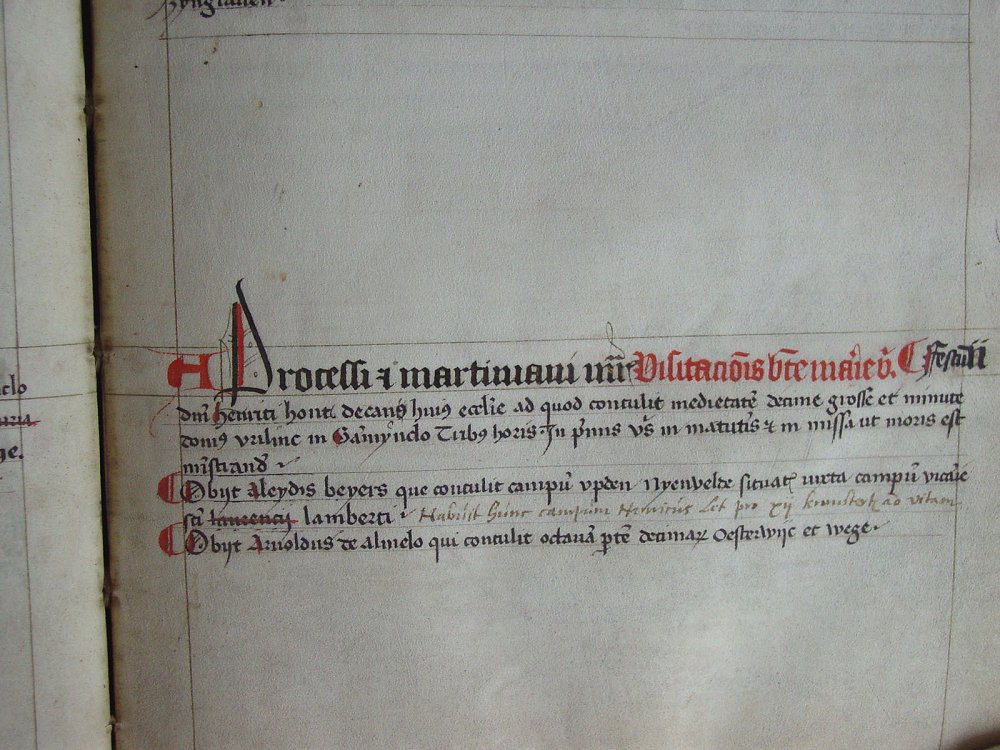 A Processi & martiniani mr̄m Visitacōnis bt̄e marie v̓. Festū
dn̄i Henrici honti decani huiꝰ eccl̄ie ad quod contulit medietatē decime grosse et minute
domus vrilinc in Tribꝫ horis In p̄mis vs̄ in matutis & in missa ut moris est
mīstrand̄
Obijt Aleydis beyers que contulit campū vpden Nyenvelde situat iuxta campū vicarie
sc̄ti laurencij lamberti Habuit hunc campum Henricus pro xij ad vitam
Obijt Arnoldus de almelo qui contulit octavā p̄tē decimar̄ Oesterwijc et wege
elo
ge.